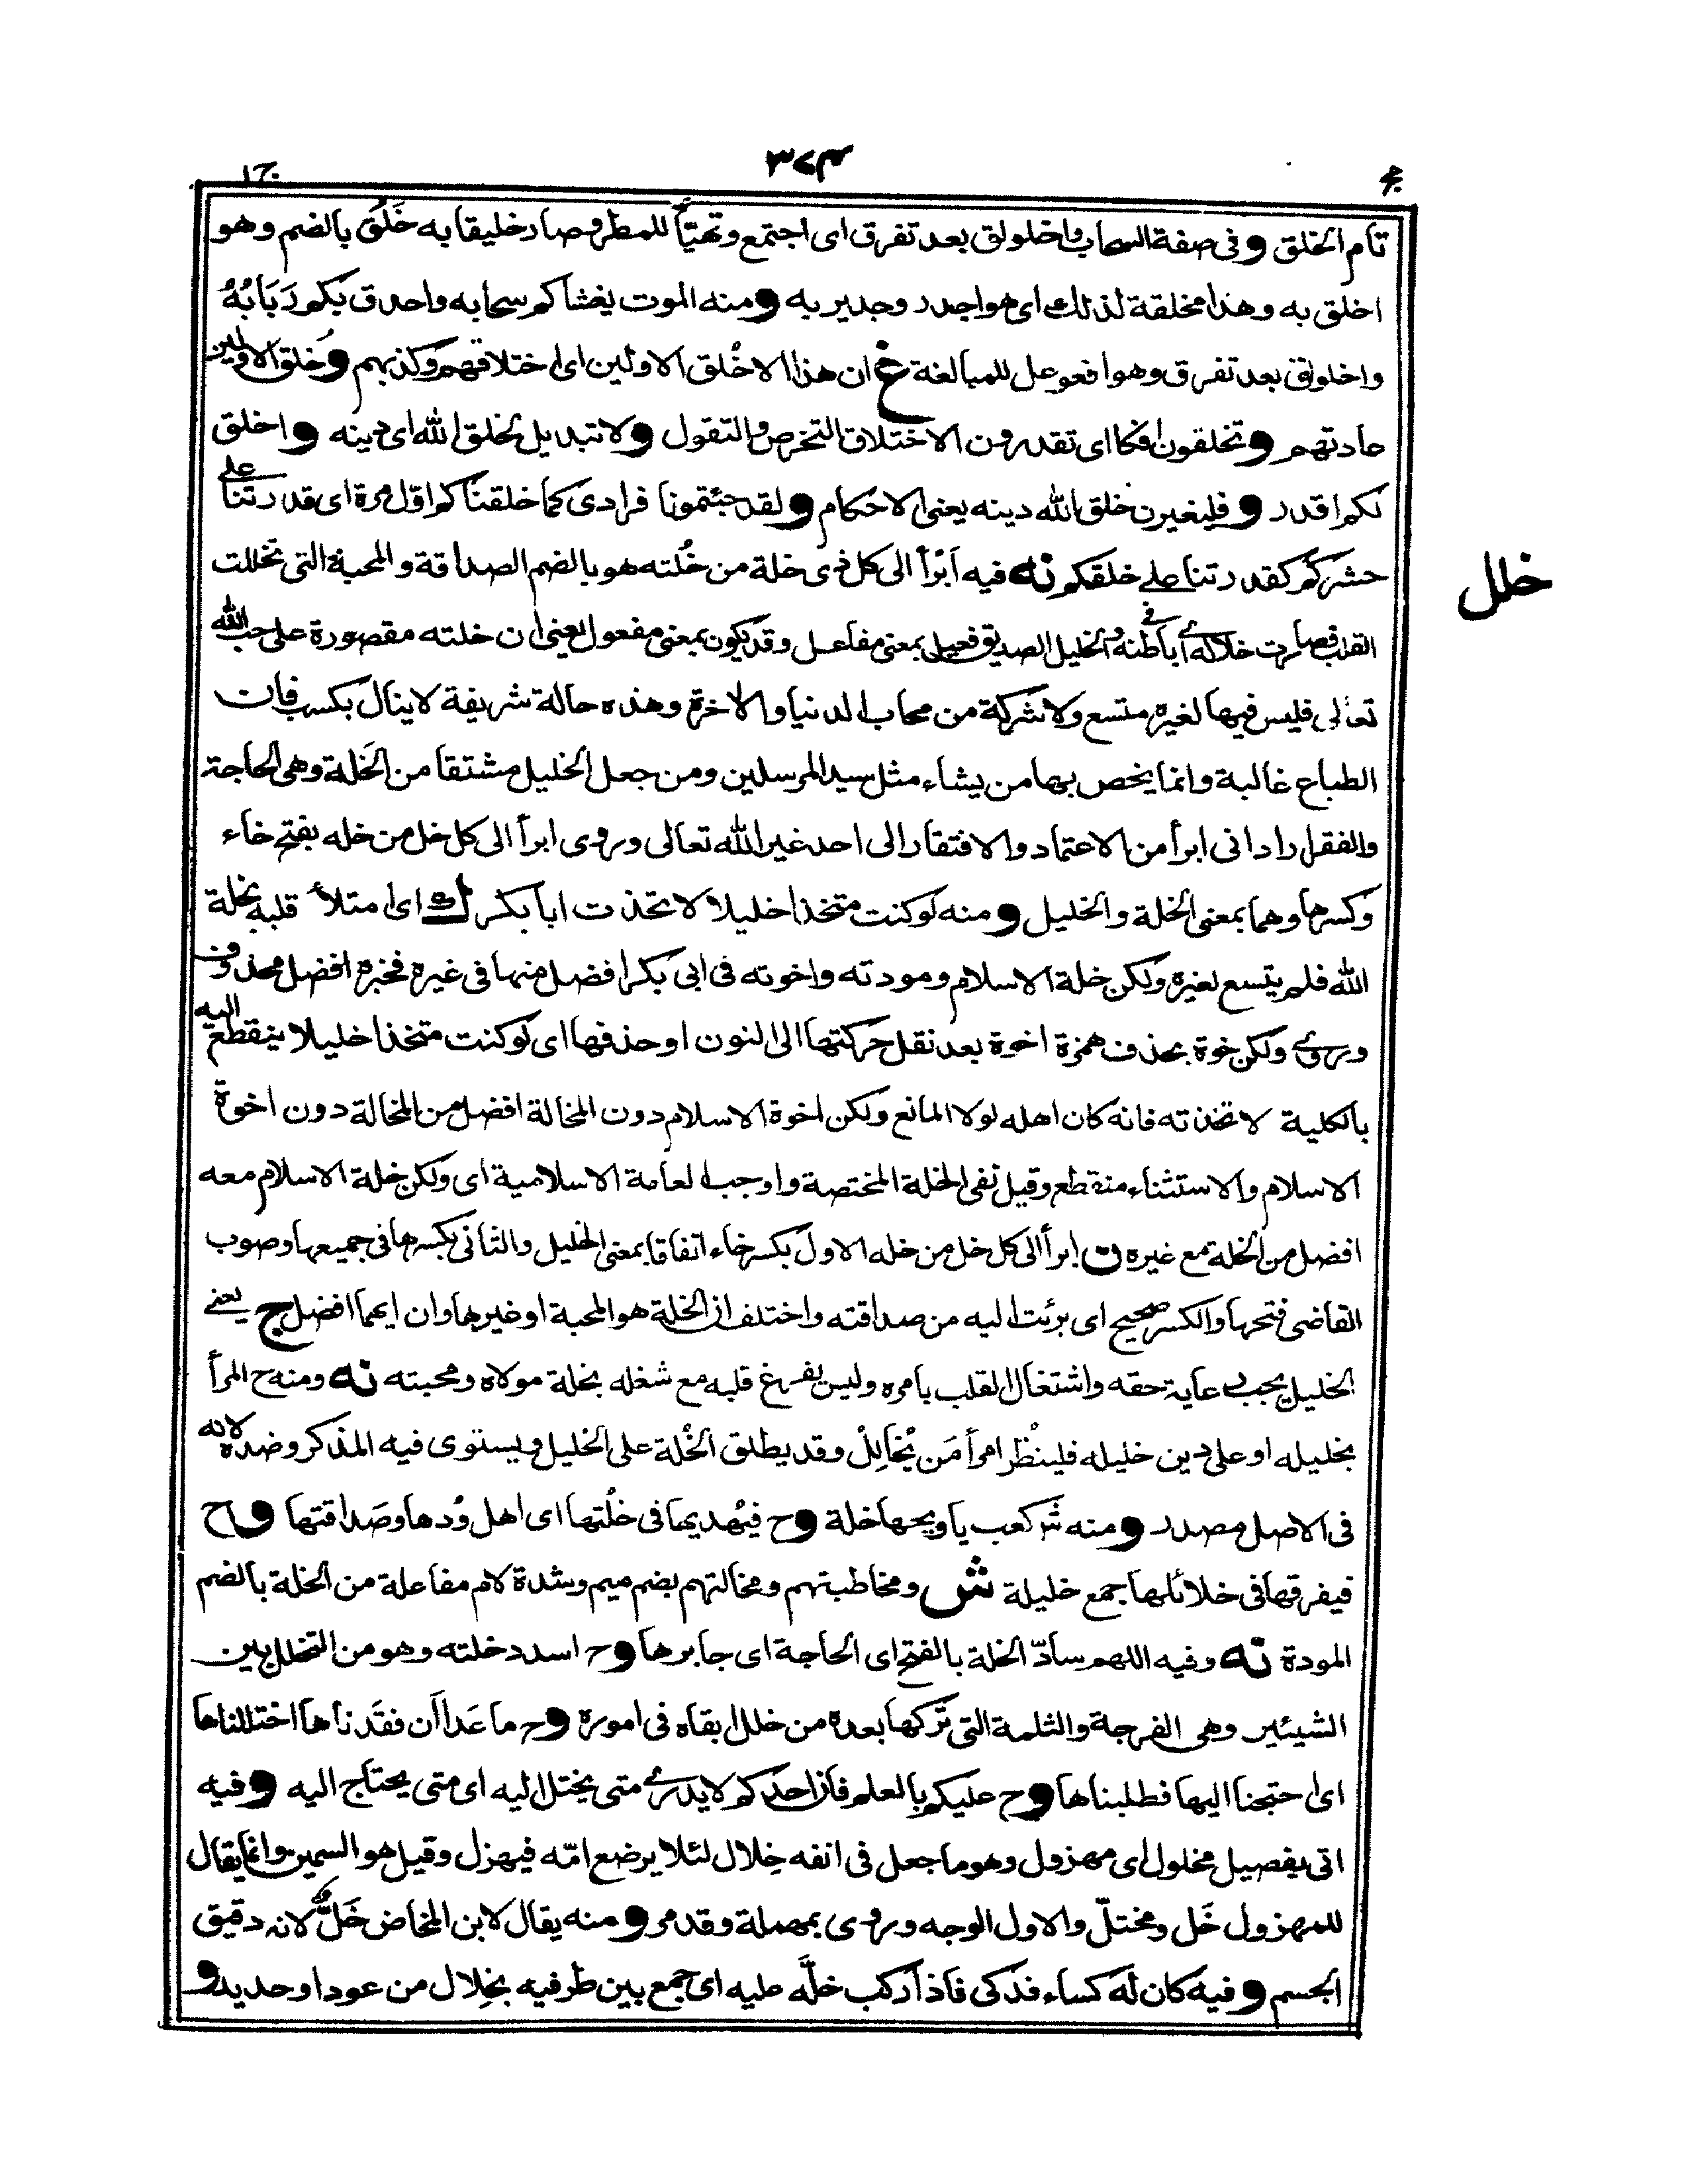 ج ١
تام الخلق و فى صفة السحاب واخلولق بعد تفرق اى اجتمع وتهيّأ للمطر وصار خليقا به خَلُق بالضم وهو
اخلق به وهذا مخلقة لذلك اى هو اجدر وجدير به و منه الموت يغشاكم سحابه واحدق بكم رَبَابُهُ
واخلولق بعد تفرق وهو افعوعل للمبالغة غ ان هذا الا خُلق الاولين اى اختلاقهم وكذبهم و خلق الاولين
عادتهم و تخلقون افكا اى تقدرون الاختلاق التخرص والتقول و لا تبديل لخلق الله اى دينه و اخلق
لكم اقدر و فليغيرن خلق الله دينه يعنى الاحكام و لقد جئتمونا فرادى كما خلقناكم اوّل مرة اى قدرتنا على
حشركم كقدرتنا على خلقكم نه فيه اَبْرَأ الى كل ذى خلة من خُلته هو بالضم الصداقة والمحبة التى تخللت
خلل
القلب فصارت خلاله اى فى باطنه والخليل الصديق فعيل بمعنى مفاعل وقد يكون بمعنى مفعول يعنى ان خلته مقصورة على حب الله
تعالى فليس فيها لغيره متسع ولا شركة من محاب الدنيا والاخرة وهذه حالة شريفة لا ينال بكسب فان
الطباع غالبة وانما يخص بها من يشاء مثل سيد المرسلين ومن جعل الخليل مشتقا من الخَلة وهى الحاجة
والفقر اراد انى ابرأ من الاعتماد والافتقار الى احد غير الله تعالى وروى ابرأ الى كل خل من خله بفتح خاء
وكسرها وهما بمعنى الخلة والخليل و منه لو كنت متخذا خليلا لاتخذت ابا بكر ك اى امتلأ قلبه بخلة
الله فلم يتسع لغيره ولكن خلة الاسلام ومودته واخوته فى ابى بكر افضل منها فى غيره فخبره افضل محذوف
وروى ولكن خوة بحذف همزة اخوة بعد نقل حركتها الى النون او حذفها اى لو كنت متخذا خليلا ينقطع اليه
بالكلية لاتخذته فانه كان اهله لولا المانع ولكن اخوة الاسلام دون المخالة افضل من المخالة دون اخوة
الاسلام والاستثناء منقطع وقيل نفى الخلة المختصة واوجب العامة الاسلامية اى ولكن خلة الاسلام معه
افضل من الخلة مع غيره ن ابرأ الى كل خل من خله الاول بكسر خاء اتفاقا بمعنى الخليل والثانى بكسرها فى جميعها وصوب
القاضى فتحها والكسر صحيح اى برئت اليه من صداقته واختلف ان الخلة هو المحبة او غيرها وان ايهما افضل ج يعنى
الخليل يجب رعاية حقه واشتغال القلب بامره وليس يفرغ قلبه مع شغله بخلة مولاه ومحبته نه ومنه ح المرأ
بخليله او على دين خليله فلينظُر امرأ مَن يُخَالِلْ وقد يطلق الخُلة على الخليل ويستوى فيه المذكر وضده لانه
فى الاصل مصدر و منه شَر كعب ياويحها خلة و ح فيُهديها فى خلُتها اى اهل وُدها وصَداقتها و ح
فيفرقها فى خلائلها جمع خليلة ش ومخاطبتهم ومخالتهم بضم ميم وشدة لام مفاعلة من الخلة بالضم
المودة نه وفيه اللهم سادّ الخلة بالفتح اى الحاجة اى جابرها و ح اسدد خلته وهو من التخلل بين
الشيئين وهى الفرجة والثلمة التى تركها بعده من خلل ابقاه فى اموره و ح ما عَدا اَن فقَدناها اختللناها
اى احتجنا اليها فطلبناها و ح عليكم بالعلم فان احدكم لا يدرى متى يختل اليه اى متى يحتاج اليه و فيه
اتى بفصيل مخلول اى مهزول وهو ما جعل فى انفه خِلال لئلا يرضع امّه فيهزل وقيل هو السمين وانما يقال
للمهزول خَل ومختلّ والاول الوجه وروى بمهملة وقد مر و منه يقال لابن المخاض خَلٌّ لانه دقيق
الجسم و فيه كان لَه كساء فدكى فاذا ركب خلَّه عليه اى جمع بين طرفيه بخِلال من عود او حديد و